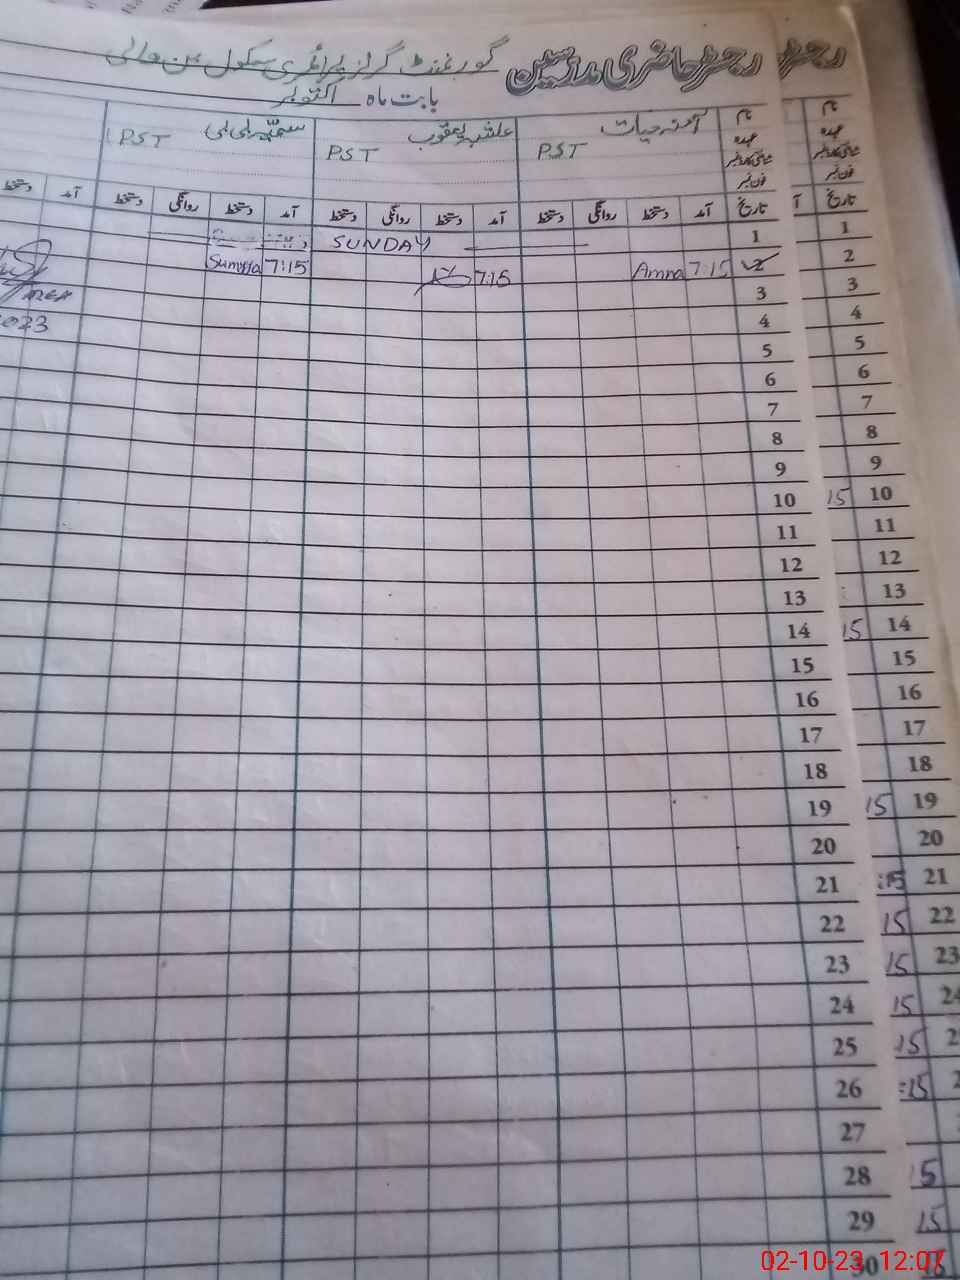 رجسٹر حاضری مدرسین گورنمنٹ گرلز پرائمری سکول
بابت ماہ اکتوبر
نام آمنہ حیات
عہدہ PST PST PST
فون نمبر
تاریخ آمد دستخط روانگی دستخط آمد دستخط روانگی دستخط آمد دستخط روانگی دستخط آمد دستخط
1 SUNDAY
2 7:15 Amna 7:15 7:15 Sumyya
3
4 2023
5
6
7
8
9
10
11
12
13
14
15
16
17
18
19
20
21
22
23
24
25
26
27
28
29
30
رجسٹر
نام
عہدہ
فون نمبر
تاریخ
1
2
3
4
5
6
7
8
9
10 15
11
12
13
14 15
15
16
17
18
19 15
20
21 :15
22 15
23 15
24 15
15
:15
15
15
02-10-23 12:07